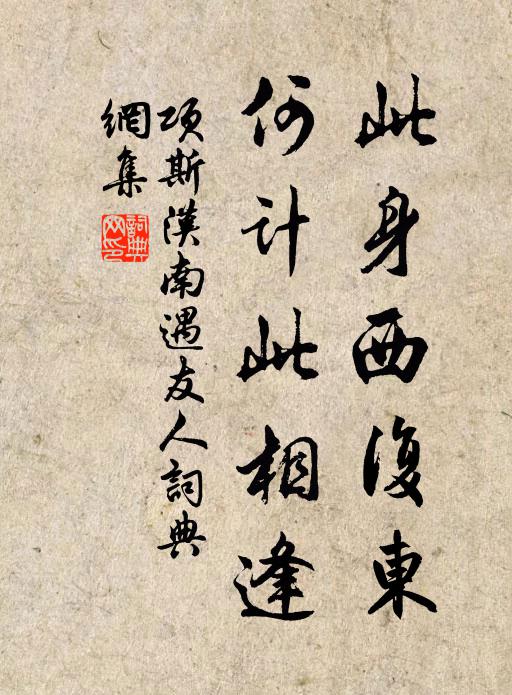 此身西復東
何計此相逢
項斯漢南遇友人詞典
網集
詞典
网印